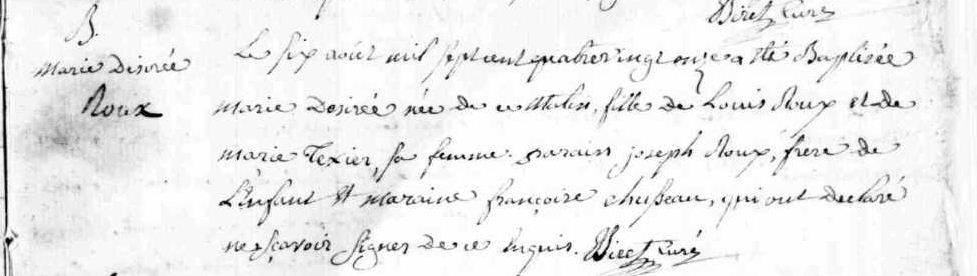 Biret Curé
B.
Marie Désirée
Roux
Le six août mil sept cent quatrevingt onze a été Baptisée
marie Desirée née de ce Matin, fille de Louis Roux et de
marie Texier, sa femme. parain joseph Roux, frere de
L'Enfant et maraine françoise chusseau, qui ont declaré
ne sçavoir signer de ce Enquis. Biret Curé